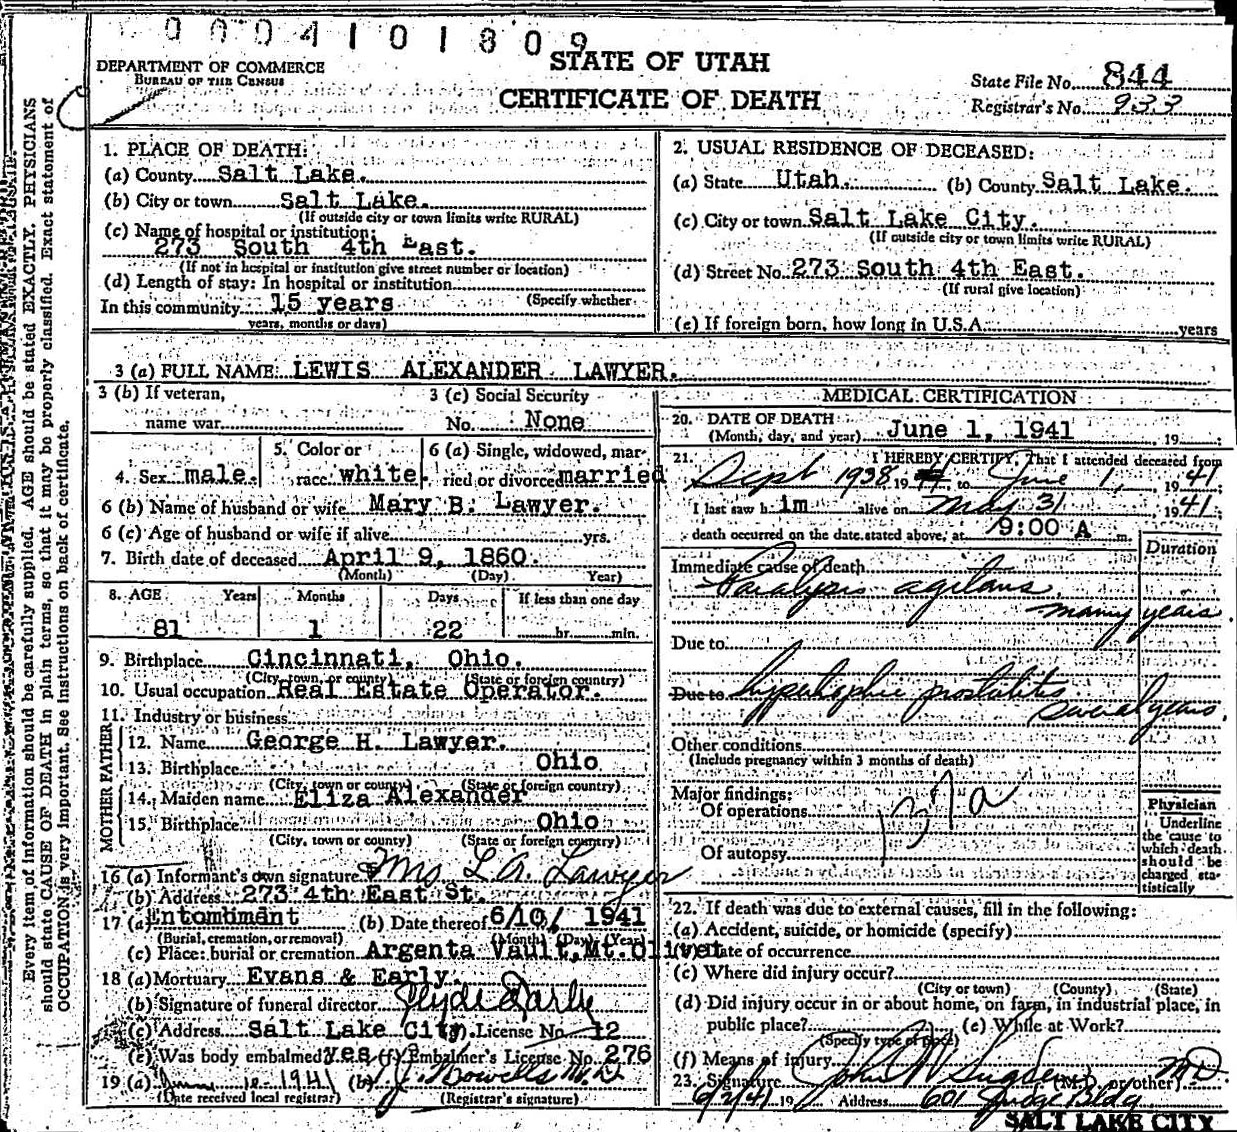 0004101809
DEPARTMENT OF COMMERCE
BUREAU OF THE CENSUS
STATE OF UTAH
CERTIFICATE OF DEATH
State File No. 844
Registrar's No. 933
Every item of information should be carefully supplied. AGE should be stated EXACTLY. PHYSICIANS
should state CAUSE OF DEATH in plain terms, so that it may be properly classified. Exact statement of
OCCUPATION is very important. See instructions on back of certificate.
1. PLACE OF DEATH:
(a) County Salt Lake.
(b) City or town Salt Lake.
(If outside city or town limits write RURAL)
(c) Name of hospital or institution:
273 South 4th East.
(If not in hospital or institution give street number or location)
(d) Length of stay: In hospital or institution
(Specify whether
In this community 15 years
years, months or days)
2. USUAL RESIDENCE OF DECEASED:
(a) State Utah. (b) County Salt Lake.
(c) City or town Salt Lake City.
(If outside city or town limits write RURAL)
(d) Street No. 273 South 4th East.
(If rural give location)
(e) If foreign born, how long in U.S.A. years
3 (a) FULL NAME: LEWIS ALEXANDER LAWYER.
3 (b) If veteran,
name war
3 (c) Social Security
No. None
4. Sex male.
5. Color or
race white
6 (a) Single, widowed, mar-
ried or divorced married
6 (b) Name of husband or wife Mary B. Lawyer.
6 (c) Age of husband or wife if alive yrs.
7. Birth date of deceased April 9, 1860.
(Month) (Day) Year)
8. AGE Years Months Days If less than one day
81 1 22 hr. min.
9. Birthplace Cincinnati, Ohio.
(City, town, or county) (State or foreign country)
10. Usual occupation Real Estate Operator.
11. Industry or business
FATHER
12. Name George H. Lawyer.
13. Birthplace Ohio
(City, town or county) (State or foreign country)
MOTHER
14. Maiden name Eliza Alexander
15. Birthplace Ohio
(City, town or county) (State or foreign country)
16 (a) Informant's own signature Mrs L A. Lawyer
(b) Address 273 4th East St.
17 (a) Entombment (b) Date thereof 6/10/ 1941
(Burial, cremation, or removal) (Month) (Day) (Year)
(c) Place: burial or cremation Argenta Vault, Mt. Olivet
18 (a) Mortuary Evans & Early.
(b) Signature of funeral director Clyde Early
(c) Address Salt Lake City. License No. 12
(e) Was body embalmed? yes (f) Embalmer's License No. 276
19 (a) June 10 1941 (b) J. Howells M.D
(Date received local registrar) (Registrar's signature)
MEDICAL CERTIFICATION
20. DATE OF DEATH
(Month, day, and year) June 1, 1941 19
21. I HEREBY CERTIFY, That I attended deceased from
Sept 1938 19 to June 1, 1941
I last saw him alive on May 31 1941.
death occurred on the date stated above, at 9:00 A m.
Duration
Immediate cause of death
Paralysis agitans
many years
Due to
Due to hypertrophic prostatitis
several years.
Other conditions
(Include pregnancy within 3 months of death)
Major findings:
Of operations
137a
Of autopsy
Physician
Underline
the cause to
which death
should be
charged sta-
tistically
22. If death was due to external causes, fill in the following:
(a) Accident, suicide, or homicide (specify)
(b) Date of occurrence
(c) Where did injury occur?
(City or town) (County) (State)
(d) Did injury occur in or about home, on farm, in industrial place, in
public place? (e) While at Work?
(Specify type of place)
(f) Means of injury
23. Signature John W Sugden MD (M.D. or other)
6/2/41 19 Address 601 Judge Bldg
SALT LAKE CITY